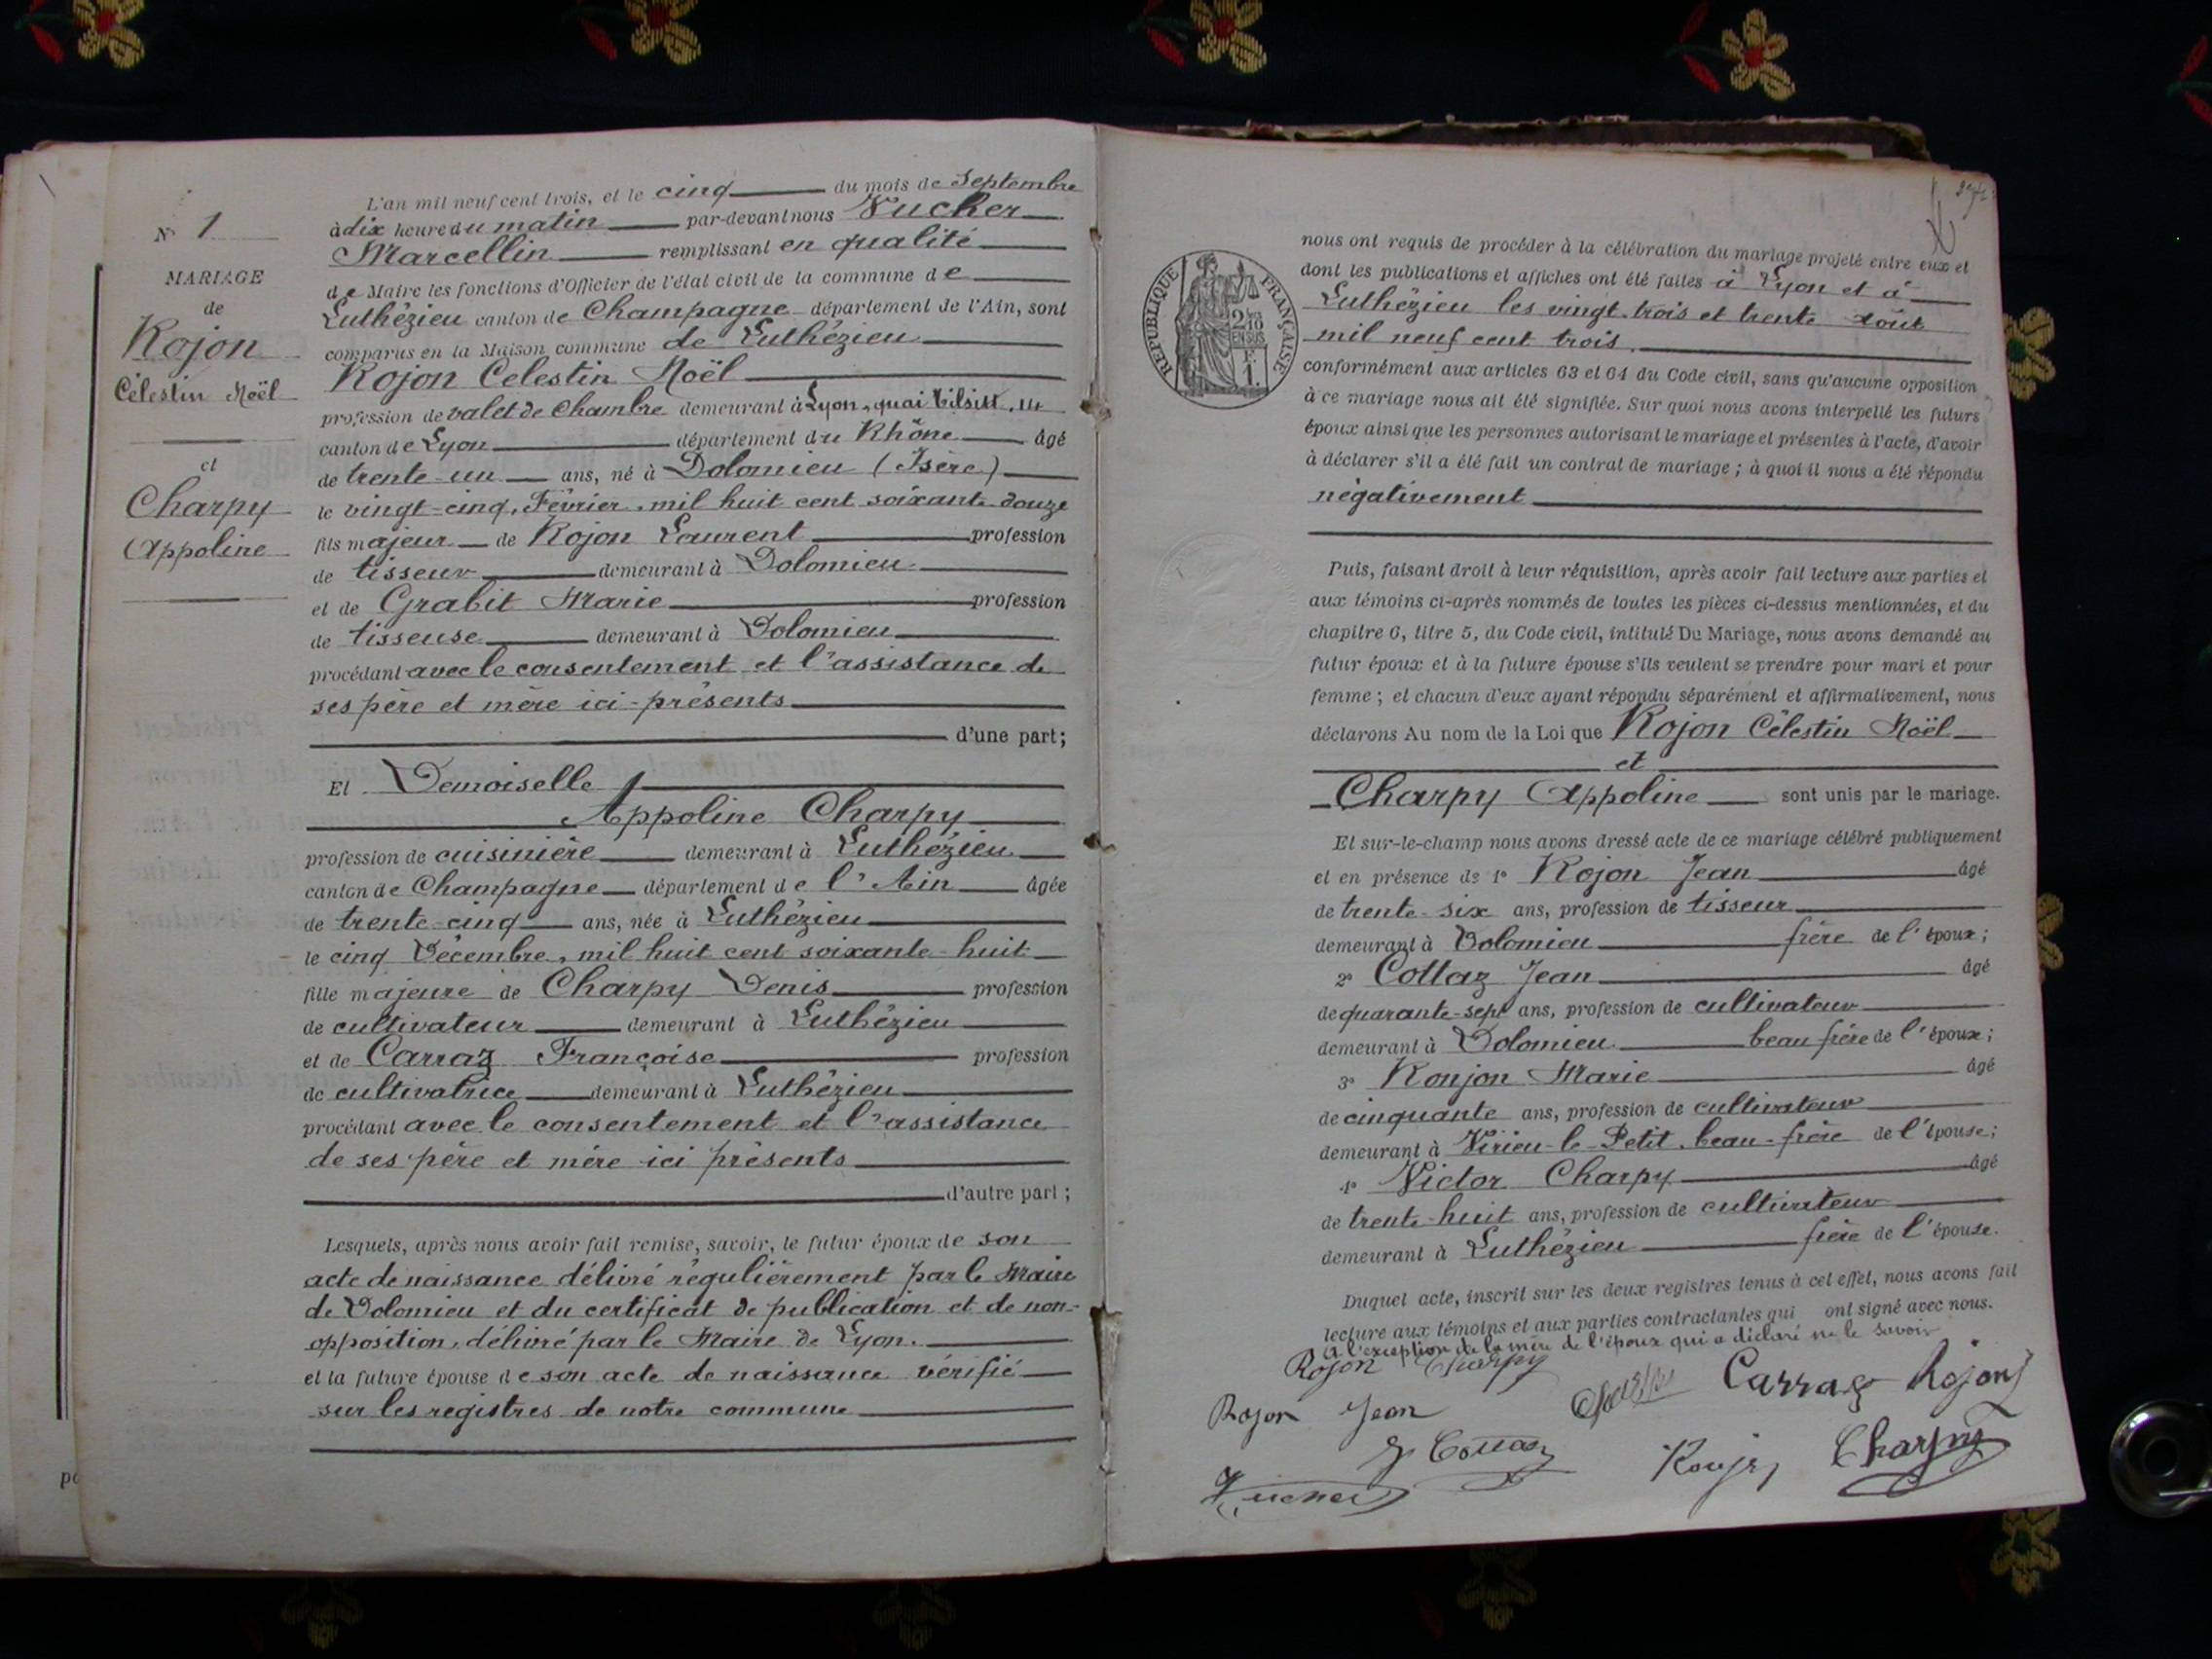 N° 1
MARIAGE
de
Rojon
Célestin Noël
et
Charpy
Appoline
L'an mil neuf cent trois, et le cinq du mois de Septembre
à dix heure du matin par-devant nous Vucher
Marcellin remplissant en qualité
de Maire les fonctions d'Officier de l'état civil de la commune de
Luthézieu canton de Champagne département de l'Ain, sont
comparus en la Maison commune de Luthézieu
Rojon Célestin Noël
profession de valet de Chambre demeurant à Lyon, quai Tilsitt, 14
canton de Lyon département du Rhône âgé
de trente-un ans, né à Dolomieu (Isère)
le vingt-cinq, Février, mil huit cent soixante-douze
fils majeur de Rojon Laurent profession
de tisseur demeurant à Dolomieu
et de Grabit Marie profession
de tisseuse demeurant à Dolomieu
procédant avec le consentement et l'assistance de
ses père et mère ici-présents
d'une part;
Et Demoiselle
Appoline Charpy
profession de cuisinière demeurant à Luthézieu
canton de Champagne département de l'Ain âgée
de trente-cinq ans, née à Luthézieu
le cinq Décembre, mil huit cent soixante-huit
fille majeure de Charpy Denis profession
de cultivateur demeurant à Luthézieu
et de Carraz Françoise profession
de cultivatrice demeurant à Luthézieu
procédant avec le consentement et l'assistance
de ses père et mère ici présents
d'autre part;
Lesquels, après nous avoir fait remise, savoir, le futur époux de son
acte de naissance délivré régulièrement par le Maire
de Dolomieu et du certificat de publication et de non-
opposition, délivré par le Maire de Lyon.
et la future épouse de son acte de naissance vérifié
sur les registres de notre commune
RÉPUBLIQUE FRANÇAISE
2/10
EN SUS
1 F.
nous ont requis de procéder à la célébration du mariage projeté entre eux et
dont les publications et affiches ont été faites à Lyon et à
Luthézieu les vingt-trois et trente août
mil neuf cent trois.
conformément aux articles 63 et 64 du Code civil, sans qu'aucune opposition
à ce mariage nous ait été signifiée. Sur quoi nous avons interpellé les futurs
époux ainsi que les personnes autorisant le mariage et présentes à l'acte, d'avoir
à déclarer s'il a été fait un contrat de mariage; à quoi il nous a été répondu
négativement
Puis, faisant droit à leur réquisition, après avoir fait lecture aux parties et
aux témoins ci-après nommés de toutes les pièces ci-dessus mentionnées, et du
chapitre 6, titre 5, du Code civil, intitulé Du Mariage, nous avons demandé au
futur époux et à la future épouse s'ils veulent se prendre pour mari et pour
femme; et chacun d'eux ayant répondu séparément et affirmativement, nous
déclarons Au nom de la Loi que Rojon Célestin Noël
et
Charpy Appoline sont unis par le mariage.
Et sur-le-champ nous avons dressé acte de ce mariage célébré publiquement
et en présence de 1° Rojon Jean âgé
de trente-six ans, profession de tisseur
demeurant à Dolomieu frère de l'époux;
2° Collaz Jean âgé
de quarante-sept ans, profession de cultivateur
demeurant à Dolomieu beau frère de l'époux;
3° Ronjon Marie âgé
de cinquante ans, profession de cultivateur
demeurant à Virieu-le-Petit, beau-frère de l'épouse;
4° Victor Charpy âgé
de trente-huit ans, profession de cultivateur
demeurant à Luthézieu frère de l'épouse.
Duquel acte, inscrit sur les deux registres tenus à cet effet, nous avons fait
lecture aux témoins et aux parties contractantes qui ont signé avec nous.
à l'exception de la mère de l'époux qui a déclaré ne le savoir
Rojon Charpy
Carraz Rojon
Rojon Jean
Charpy
Vucher